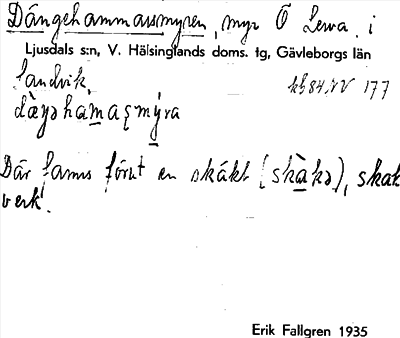 Dängehammarsmyren, myr Ö Lewa. i
Ljusdals s:n, V. Hälsinglands doms. tg, Gävleborgs län
Sandvik, 84, IV 177
Där fanns förut en skåkt [skàkə], skak
verk.
Erik Fallgren 1935